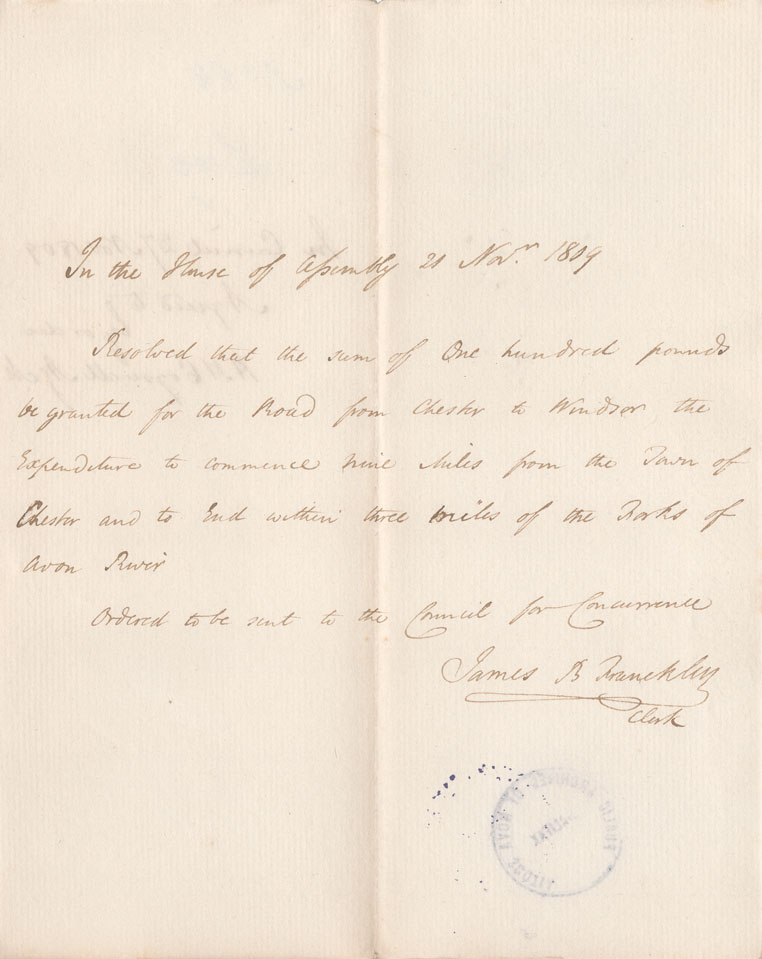 In the House of Assembly 21 Novr. 1809
Resolved that the sum of One hundred pounds
be granted for the Road from Chester to Windsor the
Expenditure to commence nine Miles from the Town of
Chester and to End within three miles of the Forks of
Avon River
Ordered to be sent to the Council for Concurrence
James B Franckley
Clerk
PUBLIC ARCHIVES OF NOVA SCOTIA
HALIFAX